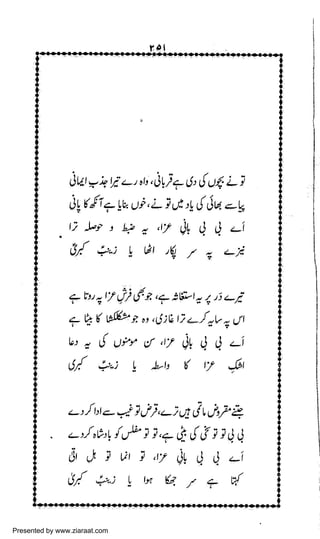 ۲۵۱
تو نے بچوں کی دی ہے قربانی، واہ رے تیرا جذبِ ایمانی
پیاسے بھائی کی یاد میں تو نے، خوں بنایا ہے آنکھ کا پانی
اَے بی بی بانیِ عزا، یہ ضبط و حوصلہ ترا
نیزے پہ سر پکار اٹھا یا زینبِؑ کبریٰ
تیرے دَر پر یہ استغاثہ ہے، جو بھی فرشِ عزا پہ روتا ہے
اس پہ سایہ کرے تری چادر، وہ جو مشکلکشا کا بیٹا ہے
اَے بی بی بانیِ عزا، سن مومنوں کی یہ دعا
اشکِ عزا کا واسطہ یا زینبِؑ کبریٰ
جتنے مقروض ہیں تیرے، قرض تو غیب سے ادا کر دے
بی بی تو تو سخی کی بیٹی ہے، تو تو مفلس کو بادشاہ کر دے
اَے بی بی بانیِ عزا، تو انما تو ہل اتیٰ
کہتا ہے سر جھکا ہوا یا زینبِؑ کبریٰ
Presented by www.ziaraat.com